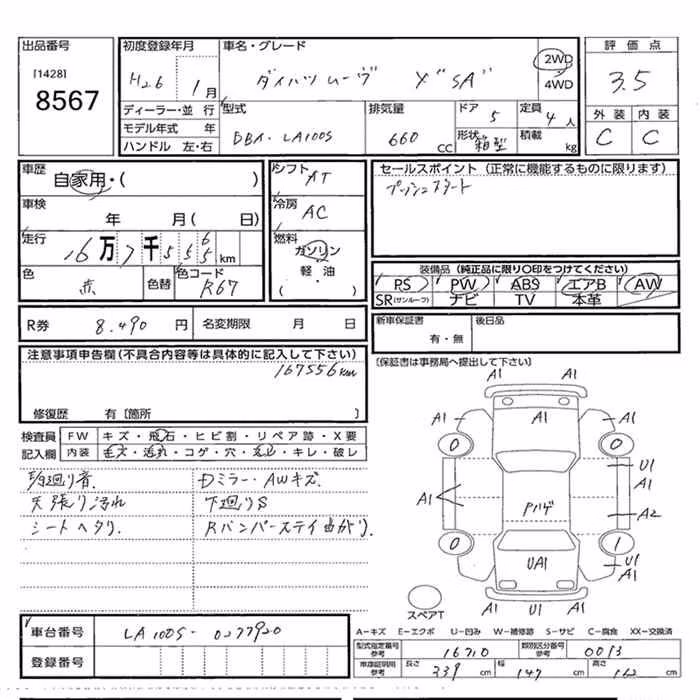 出品番号 [1428] 8567
初度登録年月 H26 年 1月
車名・グレード ダイハツ ムーヴ X "SA"
2WD
4WD
評価点 3.5
外装 内装
C C
ディーラー・並行
モデル年式 年
ハンドル 左・右
型式 DBA-LA100S
排気量 660 CC
ドア 5
形状 箱型
定員 4人
積載 kg
車歴 自家用・( )
車検 年 月(日)
走行 16万7千556km
色 赤 色替 色コード R67
シフト AT
冷房 AC
燃料 ガソリン
軽・油
・( )
セールスポイント(正常に機能するものに限ります)
プッシュスタート
装備品(純正品に限り○印をつけてください)
PS PW ABS エアB AW
SR(サンルーフ) ナビ TV 本革
R券 8.490 円 名変期限 月 日
新車保証書 有・無 後日品
(保証書は事務局へ提出して下さい)
注意事項申告欄(不具合内容等は具体的に記入して下さい)
167556km
修復歴 有[箇所 ]
検査員 FW キズ・飛石・ヒビ割・リペア跡・X要
記入欄 内装 キズ・汚れ・コゲ・穴・キレ・破レ
天張り汚れ
シートヘタリ
Dミラー・AWキズ
下廻りS
Rバンパーステイ曲がり
A1
A1 A1 A1
0 0
U1
A1
A1
A2
Pハゲ
0 1
UA1
U1
A1
A1 U1 A1
スペアT
A-キズ E-エクボ U-凹み W-補修跡 S-サビ C-腐食 XX-交換済
車台番号 LA100S-0277920
登録番号
型式指定番号 参考 16710 類別区分番号 参考 0013
車庫証明用 参考 長さ 339 cm 幅 147 cm 高さ cm